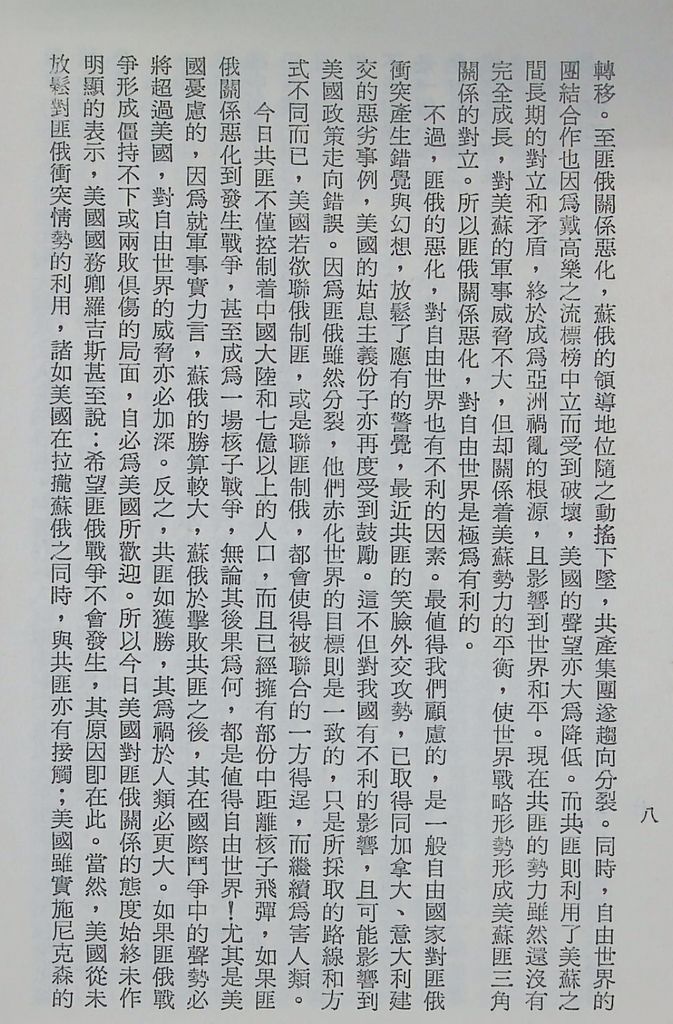 轉移。至匪俄關係惡化，蘇俄的領導地位隨之動搖下墜，共產集團遂趨向分裂。同時，自由世界的
團結合作也因爲戴高樂之流標榜中立而受到破壞，美國的聲望亦大爲降低。而共匪則利用了美蘇之
間長期的對立和矛盾，終於成爲亞洲禍亂的根源，且影響到世界和平。現在共匪的勢力雖然還沒有
完全成長，對美蘇的軍事威脅不大，但却關係着美蘇勢力的平衡，使世界戰略形勢形成美蘇匪三角
關係的對立。所以匪俄關係惡化，對自由世界是極爲有利的。
不過，匪俄的惡化，對自由世界也有不利的因素。最值得我們顧慮的，是一般自由國家對匪俄
衝突產生錯覺與幻想，放鬆了應有的警覺，最近共匪的笑臉外交攻勢，已取得同加拿大、意大利建
交的惡劣事例，美國的姑息主義份子亦再度受到鼓勵。這不但對我國有不利的影響，且可能影響到
美國政策走向錯誤。因爲匪俄雖然分裂，他們赤化世界的目標則是一致的，只是所採取的路線和方
式不同而已，美國若欲聯俄制匪，或是聯匪制俄，都會使得被聯合的一方得逞，而繼續爲害人類。
今日共匪不僅控制着中國大陸和七億以上的人口，而且已經擁有部份中距離核子飛彈，如果匪
俄關係惡化到發生戰爭，甚至成爲一場核子戰爭，無論其後果爲何，都是值得自由世界！尤其是美
國憂慮的，因爲就軍事實力言，蘇俄的勝算較大，蘇俄於擊敗共匪之後，其在國際鬥爭中的聲勢必
將超過美國，對自由世界的威脅亦必加深。反之，共匪如獲勝，其爲禍於人類必更大。如果匪俄戰
爭形成僵持不下或兩敗俱傷的局面，自必爲美國所歡迎。所以今日美國對匪俄關係的態度始終未作
明顯的表示，美國國務卿羅吉斯甚至說：希望匪俄戰爭不會發生，其原因即在此。當然，美國從未
放鬆對匪俄衝突情勢的利用，諸如美國在拉攏蘇俄之同時，與共匪亦有接觸；美國雖實施尼克森的
八